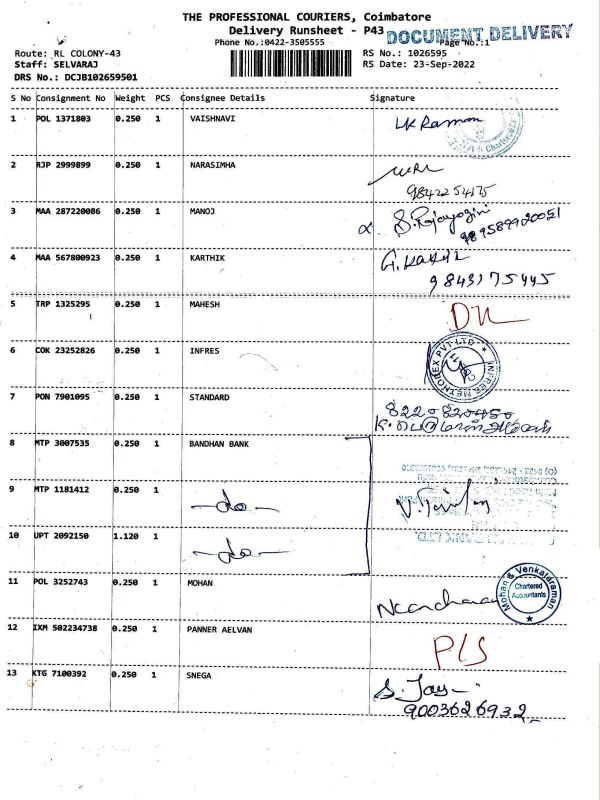 THE PROFESSIONAL COURIERS, Coimbatore
Delivery Runsheet - P43
DOCUMENT DELIVERY
Phone No.:0422-3505555
Page No.:1
Route: RL COLONY-43
RS No.: 1026595
Staff: SELVARAJ
RS Date: 23-Sep-2022
DRS No.: DCJB102659501
S No Consignment No Weight PCS Consignee Details Signature
1 POL 1371803 0.250 1 VAISHNAVI
2 RJP 2999899 0.250 1 NARASIMHA
9842254175
3 MAA 287220086 0.250 1 MANOJ S.Rajayogini
4 MAA 567800923 0.250 1 KARTHIK
9843175445
5 TRP 1325295 0.250 1 MAHESH
6 COK 23252826 0.250 1 INFRES
7 PON 7901095 0.250 1 STANDARD
8 MTP 3007535 0.250 1 BANDHAN BANK
9 MTP 1181412 0.250 1 -do-
10 UPT 2092150 1.120 1 -do-
11 POL 3252743 0.250 1 MOHAN
Mohan & Venkataraman
Chartered
Accountants
12 IXM 502234738 0.250 1 PANNER AELVAN
13 KTG 7100392 0.250 1 SNEGA
9003626932